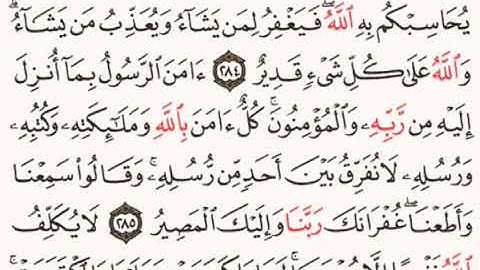 يُحَاسِبْكُم بِهِ ٱللَّهُۖ فَيَغْفِرُ لِمَن يَشَآءُ وَيُعَذِّبُ مَن يَشَآءُۗ
وَٱللَّهُ عَلَىٰ كُلِّ شَىْءٍ قَدِيرٌ ٢٨٤ ءَامَنَ ٱلرَّسُولُ بِمَآ أُنزِلَ
إِلَيْهِ مِن رَّبِّهِۦ وَٱلْمُؤْمِنُونَۚ كُلٌّ ءَامَنَ بِٱللَّهِ وَمَلَٰٓئِكَتِهِۦ وَكُتُبِهِۦ
وَرُسُلِهِۦ لَا نُفَرِّقُ بَيْنَ أَحَدٍ مِّن رُّسُلِهِۦۚ وَقَالُوا۟ سَمِعْنَا
وَأَطَعْنَاۖ غُفْرَانَكَ رَبَّنَا وَإِلَيْكَ ٱلْمَصِيرُ ٢٨٥ لَا يُكَلِّفُ
ٱللَّهُ